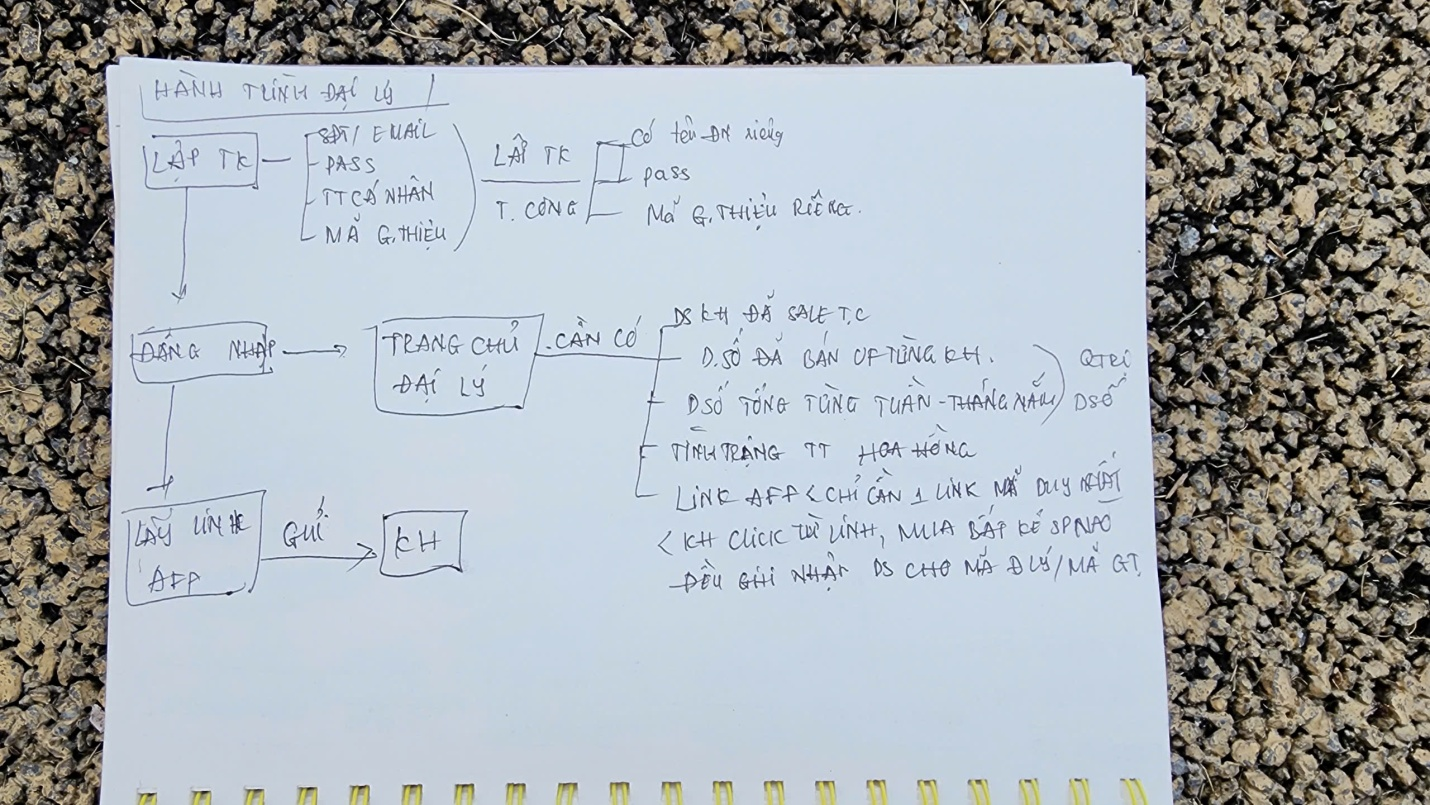 HÀNH TRÌNH ĐẠI LÝ
LẬP TK
SĐT/ EMAIL
PASS
TT CÁ NHÂN
MÃ G.THIỆU
LẬP TK
T. CÔNG
Có tên ĐN riêng
pass
Mã G.THIỆU RIÊNG.
ĐĂNG NHẬP
TRANG CHỦ
ĐẠI LÝ
.CẦN CÓ
DS KH ĐÃ SALE T.C
D.SỐ ĐÃ BÁN OF TỪNG KH.
D SỐ TỔNG TỪNG TUẦN - THÁNG NĂM
QTRỊ
DSỐ
TÌNH TRẠNG TT HOA HỒNG
LINK AFF < CHỈ CẦN 1 LINK MÃ DUY NHẤT
< KH CLICK TỪ LINH, MUA BẤT KỂ SP NÀO
ĐỀU GHI NHẬN DS CHO MÃ Đ LÝ/MÃ GT.
LẤY LINK
AFF
GỬI
KH